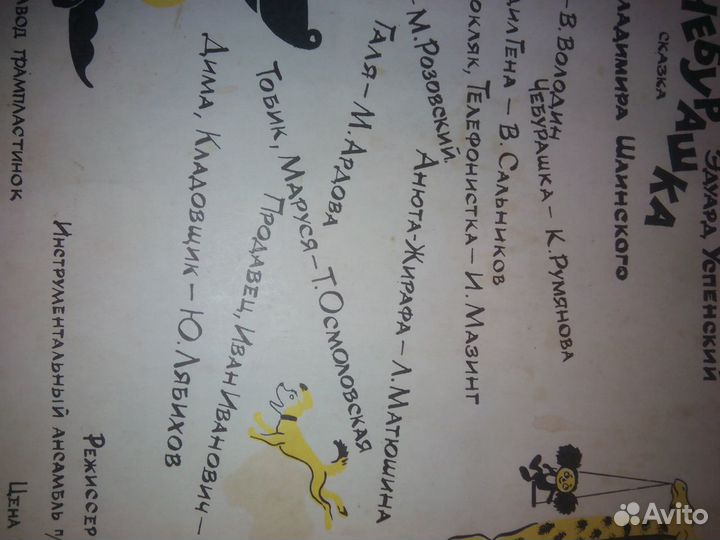 ЧЕБУРАШКА
ЭДУАРД УСПЕНСКИЙ
СКАЗКА
ШАИНСКОГО
– В. ВОЛОДИН
ЧЕБУРАШКА – К. РУМЯНОВА
ГЕНА – В. САЛЬНИКОВ
ТЕЛЕФОНИСТКА – И. МАЗИНГ
– М. РОЗОВСКИЙ.
АНЮТА-ЖИРАФА – Л. МАТЮШИНА
ГАЛЯ – М. АРДОВА
ТОБИК, МАРУСЯ – Т. ОСМОЛОВСКАЯ
ПРОДАВЕЦ, ИВАН ИВАНОВИЧ –
ДИМА, КЛАДОВЩИК – Ю. ЛЯБИХОВ
ГРАМПЛАСТИНОК
ИНСТРУМЕНТАЛЬНЫЙ АНСАМБЛЬ П/
РЕЖИССЕР
ЦЕНА
Avito